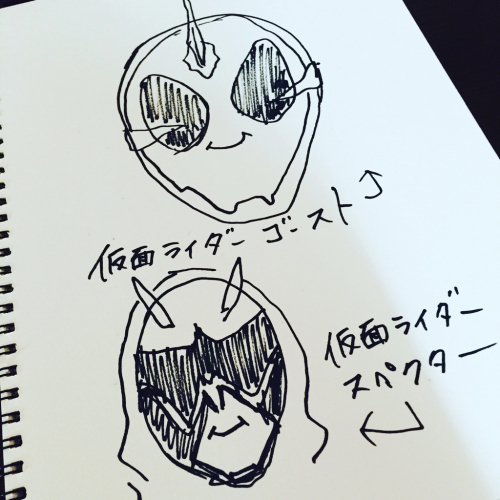 仮面ライダーゴースト
仮面ライダー
スペクター